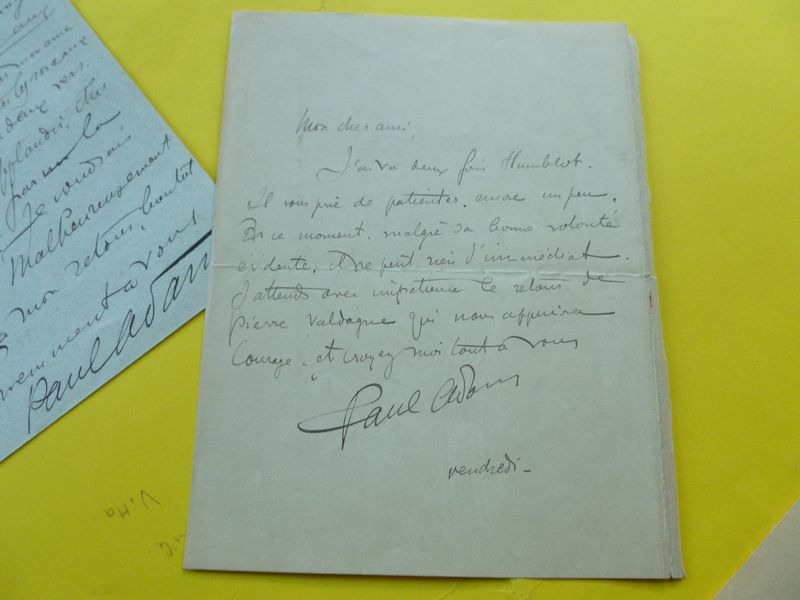 mon ame
deux vers.
applaudir, cher
par la
Je voudrais
Malheureusement
mon retour, bientôt
ment à vous
Paul Adam
Mon cher ami,
J'ai vu deux fois Humblot.
Il vous prie de patienter encore un peu.
En ce moment, malgré sa bonne volonté
évidente, il ne peut rien d'immédiat.
J'attends avec impatience le retour de
Pierre Valdagne qui nous appuiera
Courage, et croyez moi tout à vous
Paul Adam
vendredi_
Vitta